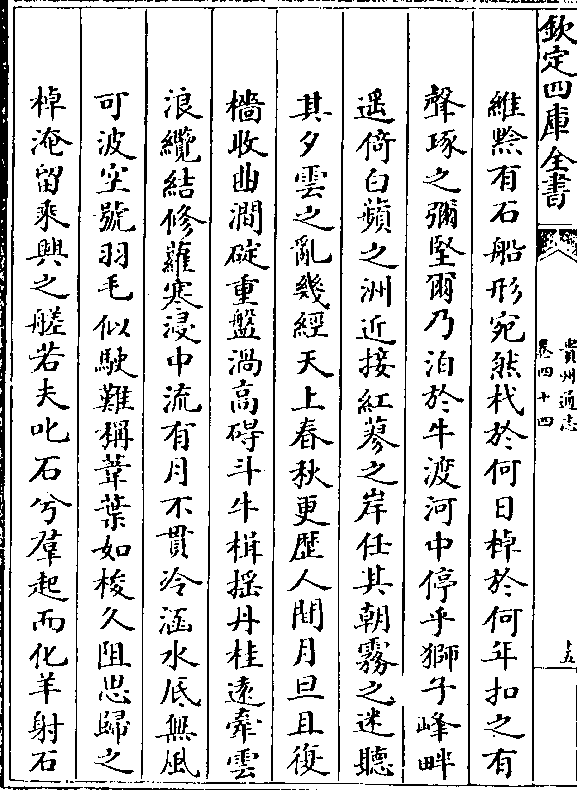 欽定四庫全書
貴州通志
卷四十四
十五
維黔有石船形宛然杙於何日棹於何年扣之有
聲琢之彌堅爾乃泊於牛渡河中停乎獅子峰畔
遥倚白蘋之洲近接紅蓼之岸任其朝霧之迷聽
其夕雲之亂幾經天上春秋更歴人間月旦且復
檣收曲澗碇重盤渦高碍斗牛楫摇丹桂遠牽雲
浪纜結修蘿寒浸中流有月不貫冷涵水底無風
可波空號羽毛似駛難稱葦葉如梭久阻思歸之
棹淹留乘興之艖若夫叱石兮羣起而化羊射石